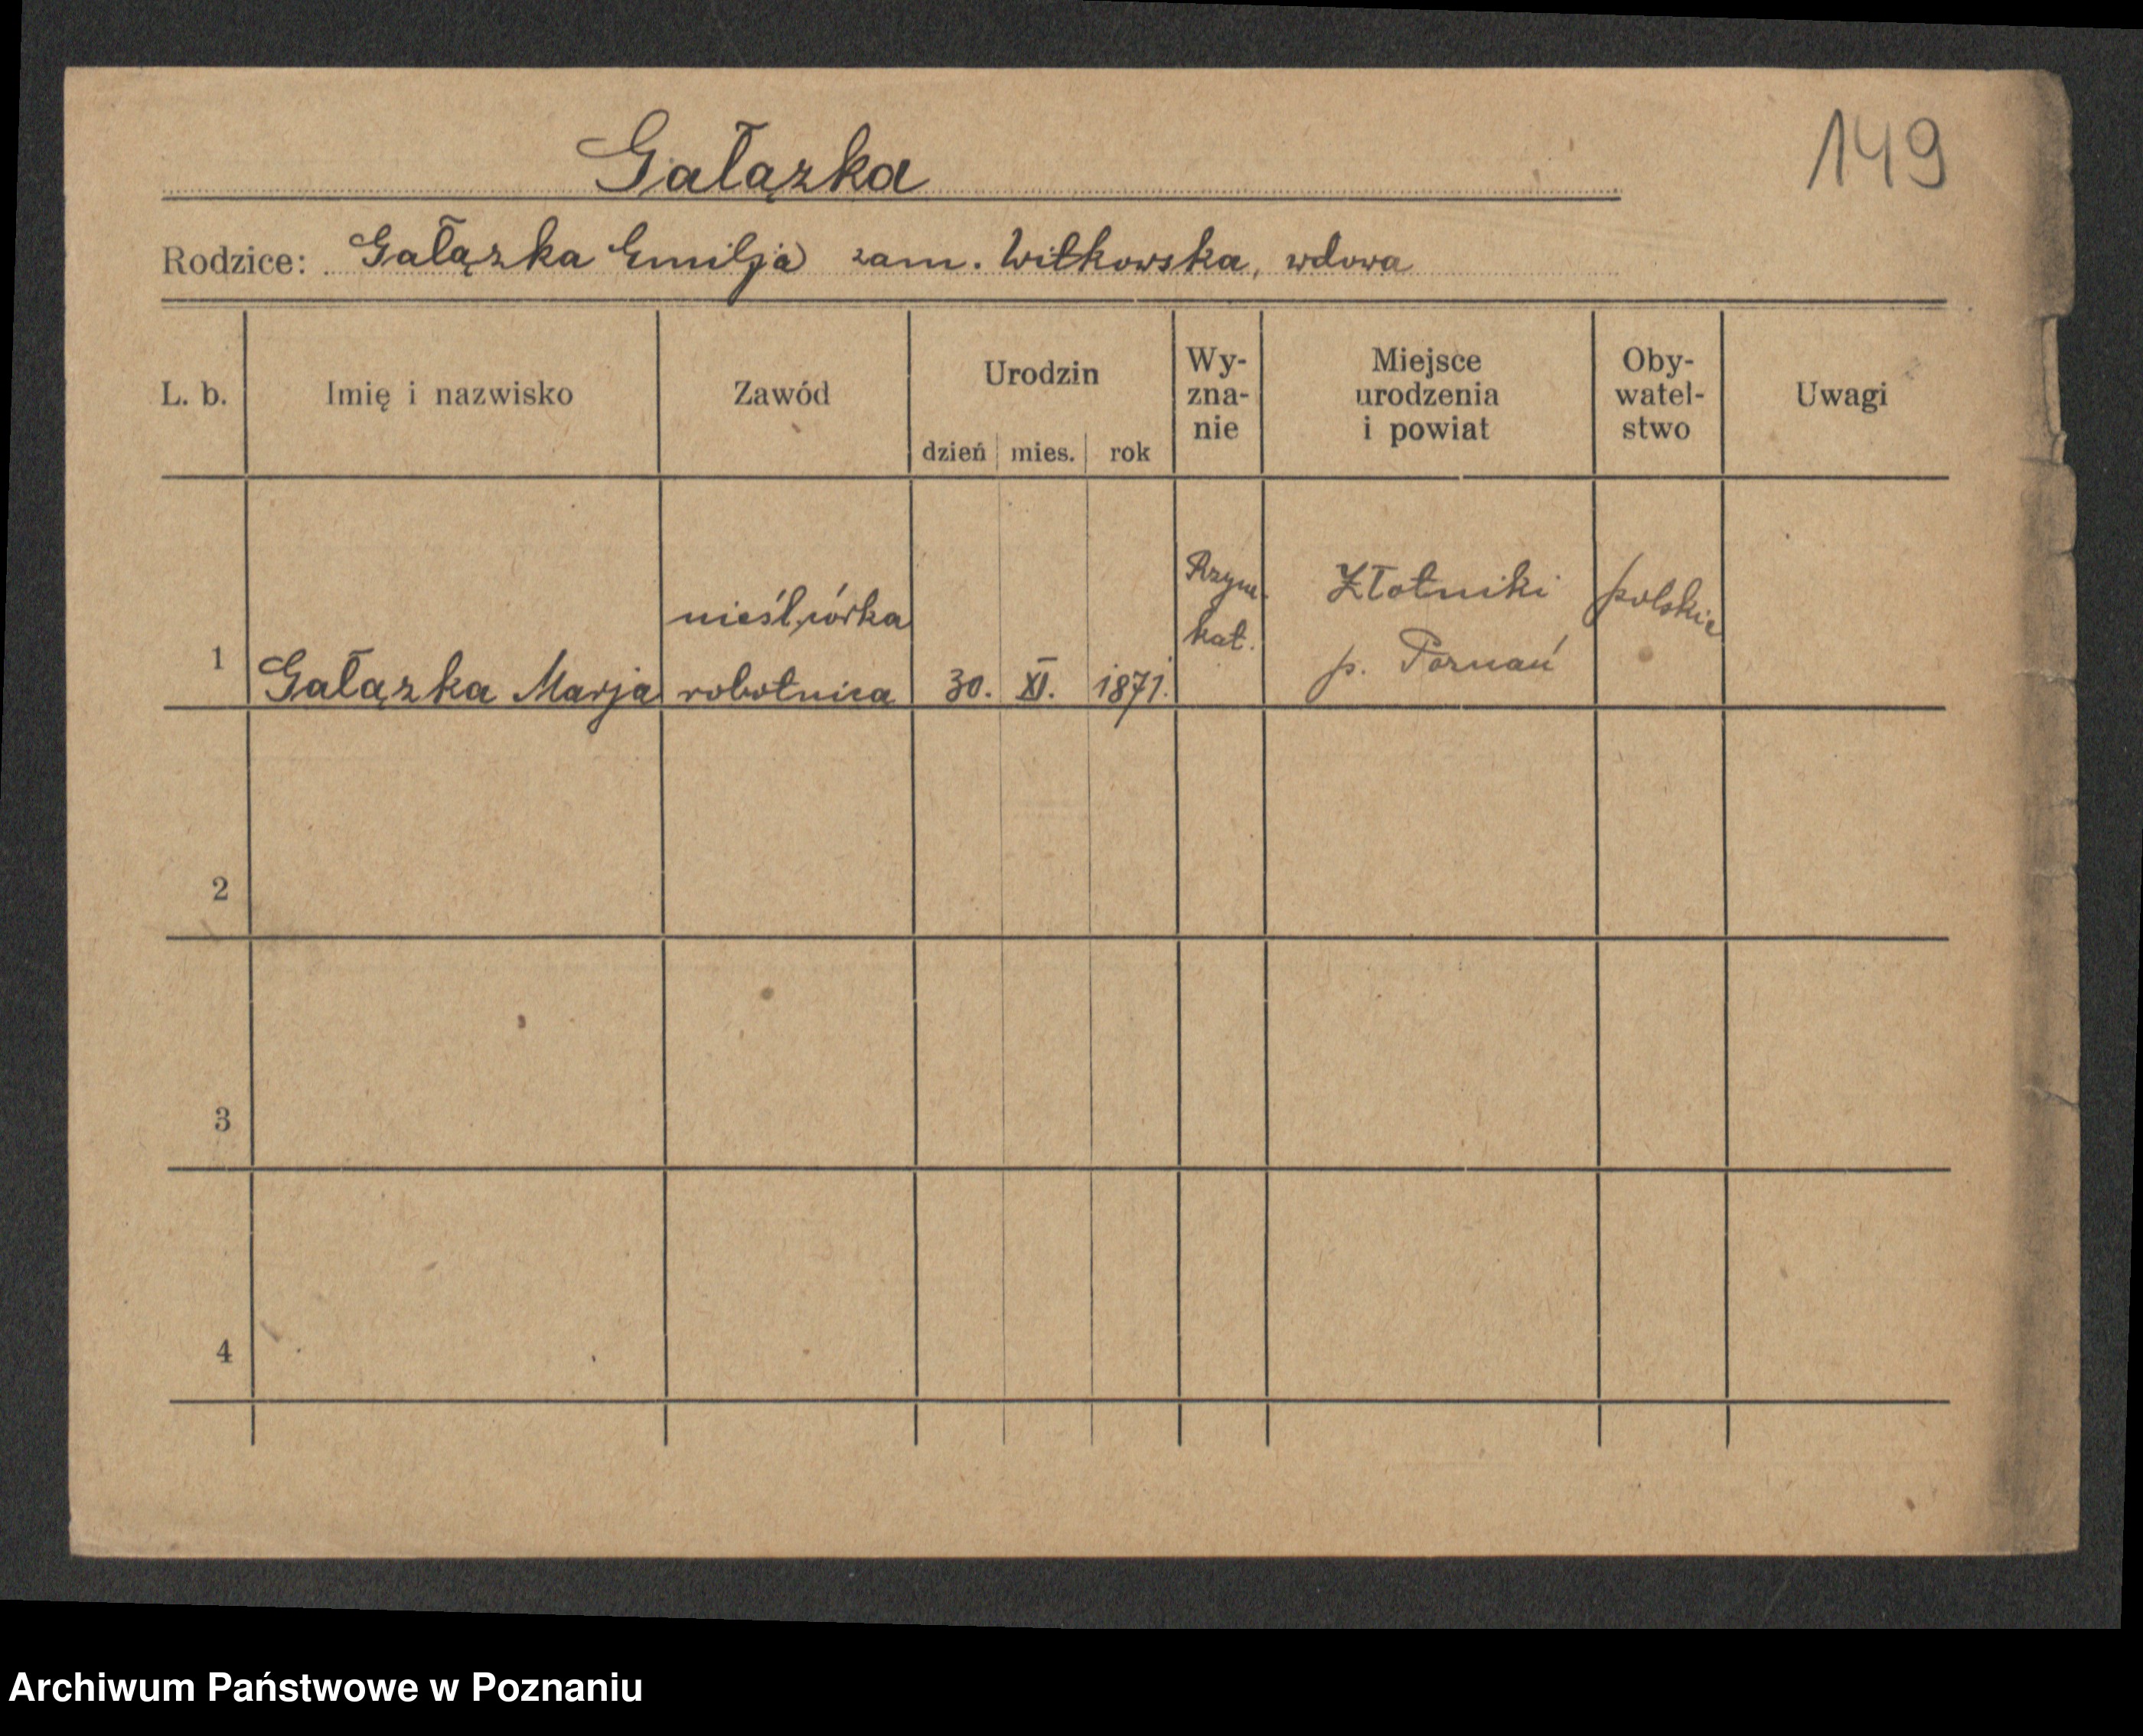 149
Gałązka
Rodzice: Gałązka Emilja zam. Witkowska, wdowa
L. b. Imię i nazwisko Zawód Urodzin dzień mies. rok Wy-zna-nie Miejsce urodzenia i powiat Oby-watel-stwo Uwagi
1 Gałązka Marja nieśl. córka robotnica 30. XI. 1871. Rzym. kat. Złotniki p. Poznań polskie
2
3
4
Archiwum Państwowe w Poznaniu